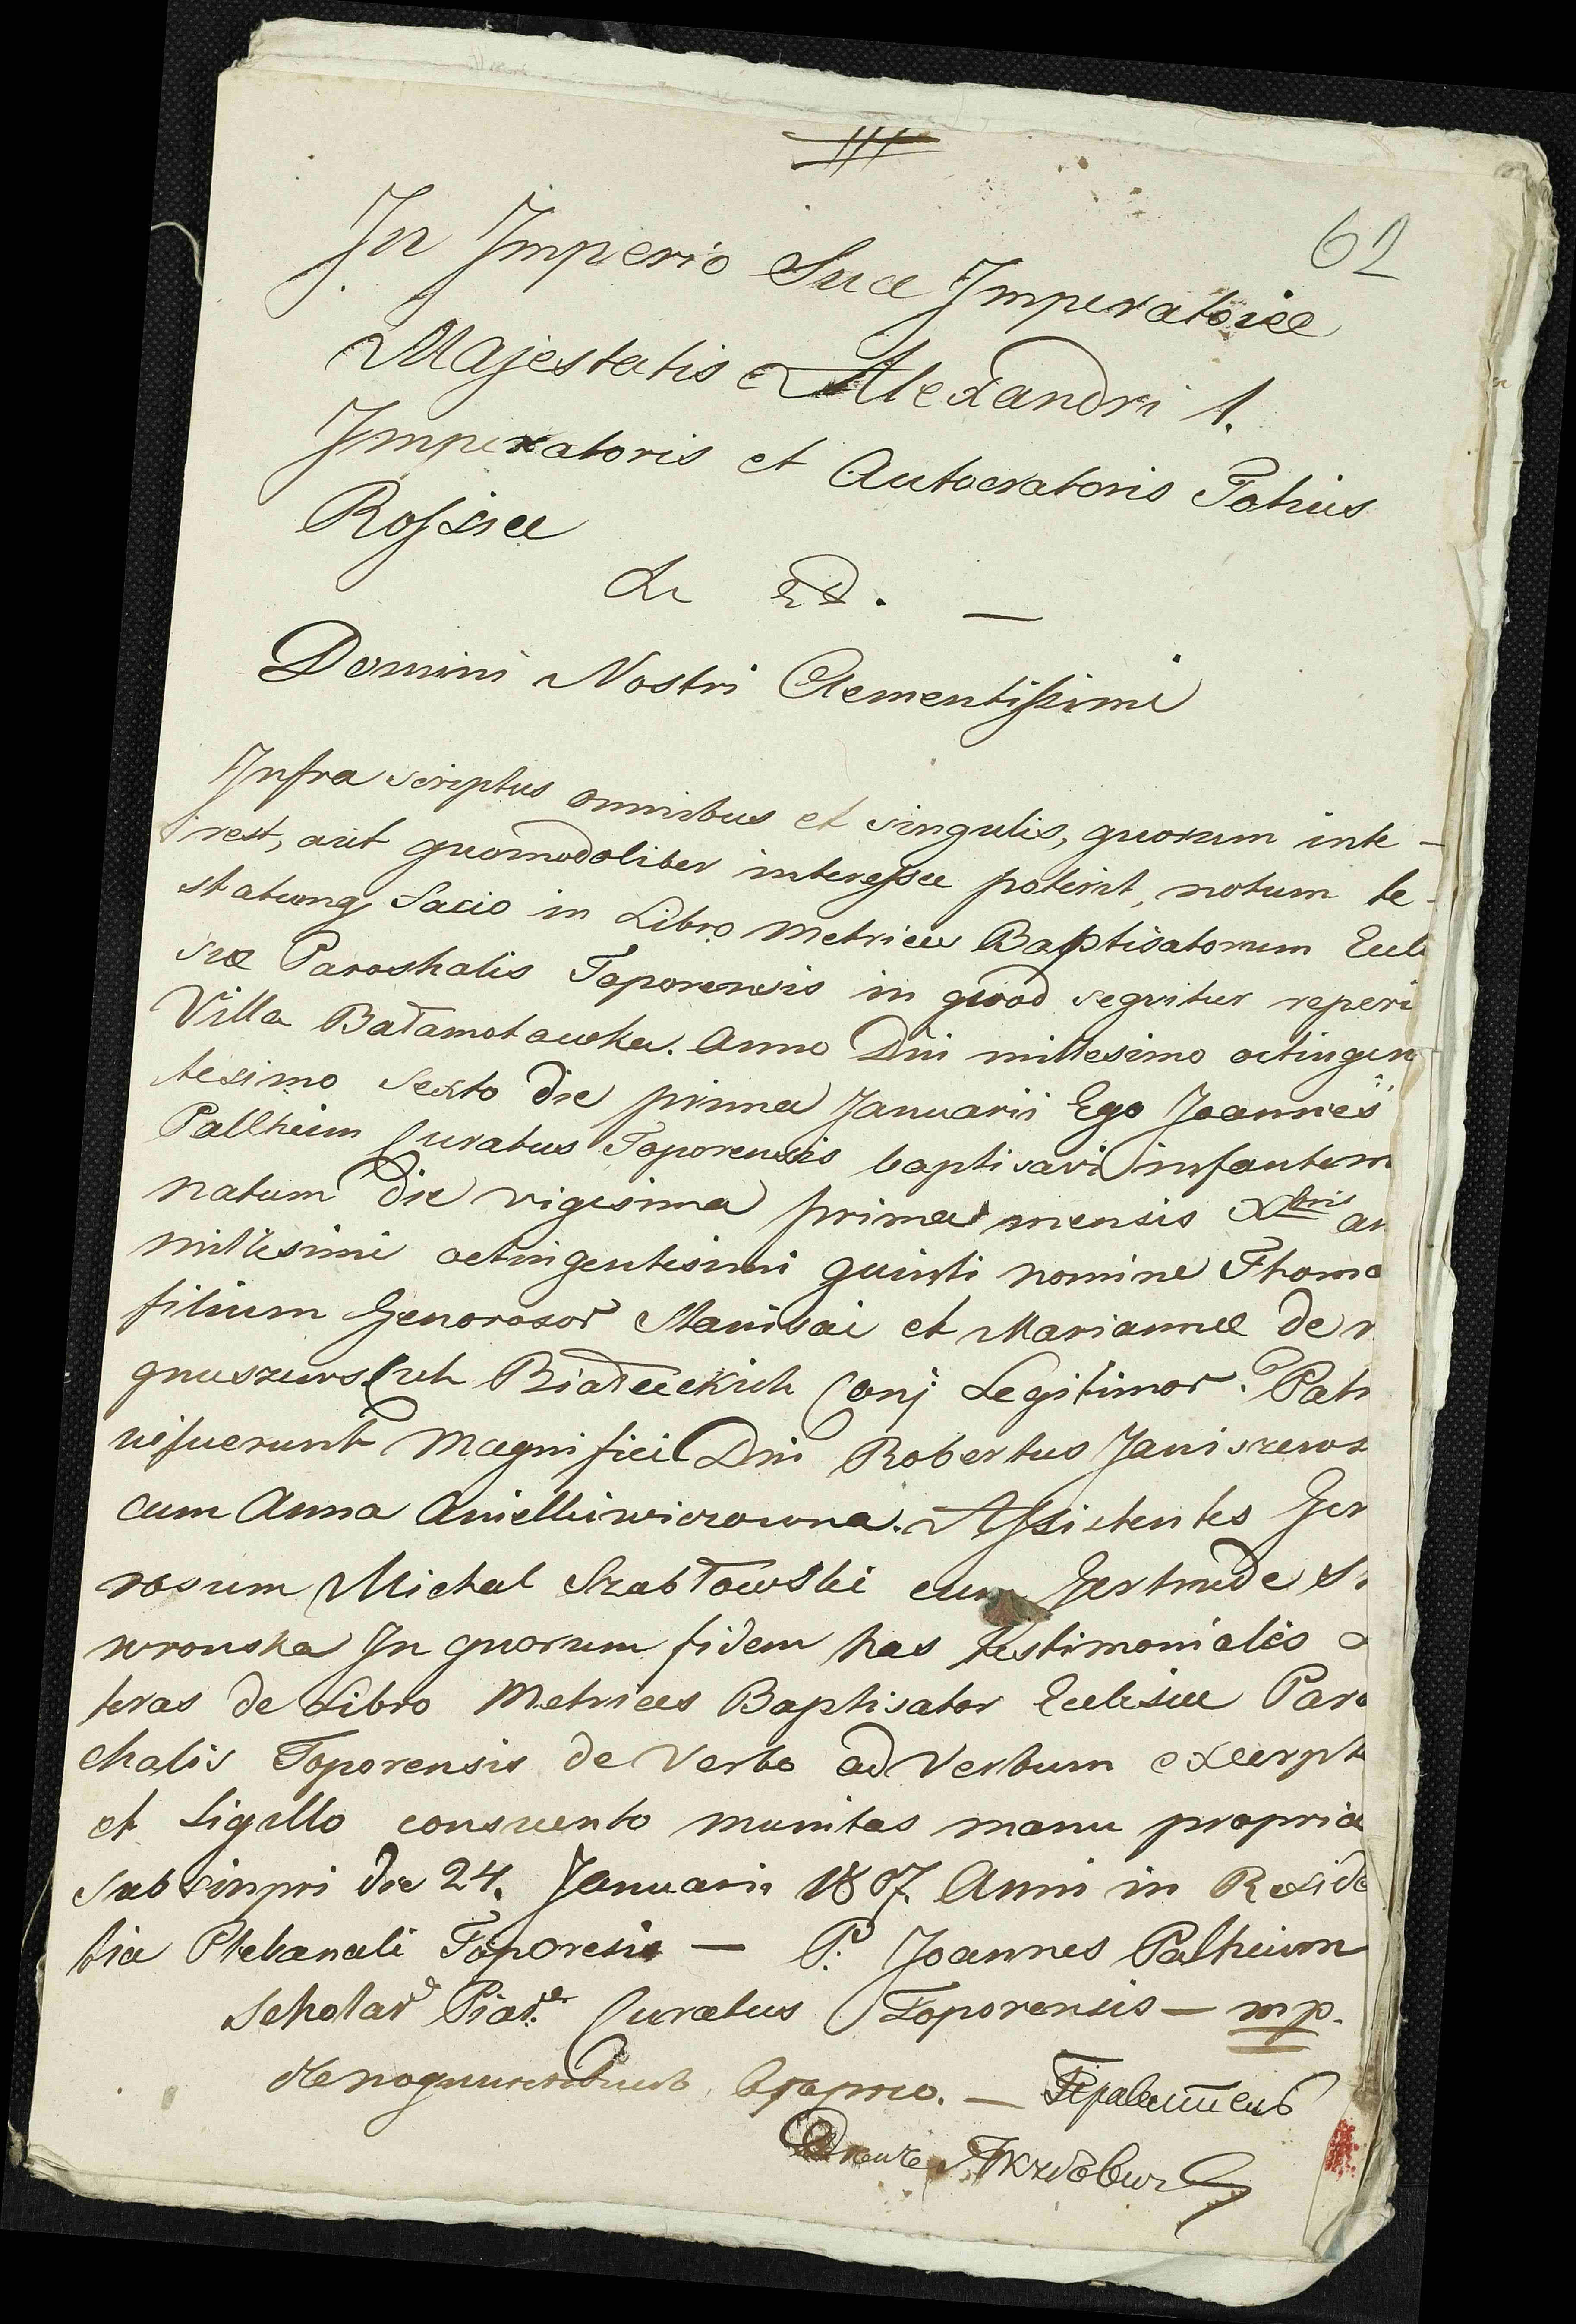 III
62
In Imperio Suæ Imperatoriæ
Majestatis Alexandri 1.
Imperatoris et Autocratoris Totius
Rossiæ
&c &c. —
Domini Nostri Clementissimi
Infra scriptus omnibus et singulis, quorum inte-
rest, aut quomodoliber interesse poterint, notum te-
statumq facio in Libro Metricæ Baptisatorum Ecle
siæ Paroshalis Toporensis in quod sequitur reperi
Villa Bałamotawka. Anno Dni millesimo octingen
tesimo sexto die prima Januarii Ego Joannes
Pallheim Curatus Toporensis baptisavi infantem
natum die vigesima prima mensis Xbris an
millesimi octingentesimi quinti nomine Thoma
filium Genorosor Stanisai et Mariannæ de
gnuszewskich Białeckich Conj Legitimor. Patr
nifuerunt Magnifici Dni Robertus Janiszews
cum Anna Anielkiewiczowna. Assistentes Gen
rosum Michal Szabłowski cum Gertrude
wronska In quorum fidem has testimoniales
teras de Libro Metrices Baptisator Eclesiæ Paro
chalis Toporensis de Verbo ad Verbum excerpt
et Sigillo consuento munitas manu propria
subsinpri die 24. Januarii 1807. Anni in Reside
tia Plebanali Toporesis — P. Joannes Palheim
Scholar Piar. Curatus Toporensis — mp.